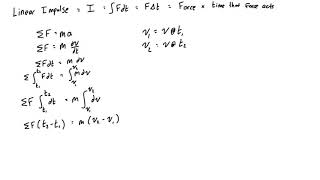 Linear Impulse = I = ∫Fdt = FΔt = Force × time that Force acts
ΣF = ma
ΣF = m dv/dt
ΣFdt = m dv
Σ∫_{t₁}^{t₂} Fdt = ∫_{v₁}^{v₂} m dv
ΣF ∫_{t₁}^{t₂} dt = m ∫_{v₁}^{v₂} dv
ΣF(t₂-t₁) = m(v₂-v₁)
v₁ = v @ t₁
v₂ = v @ t₂